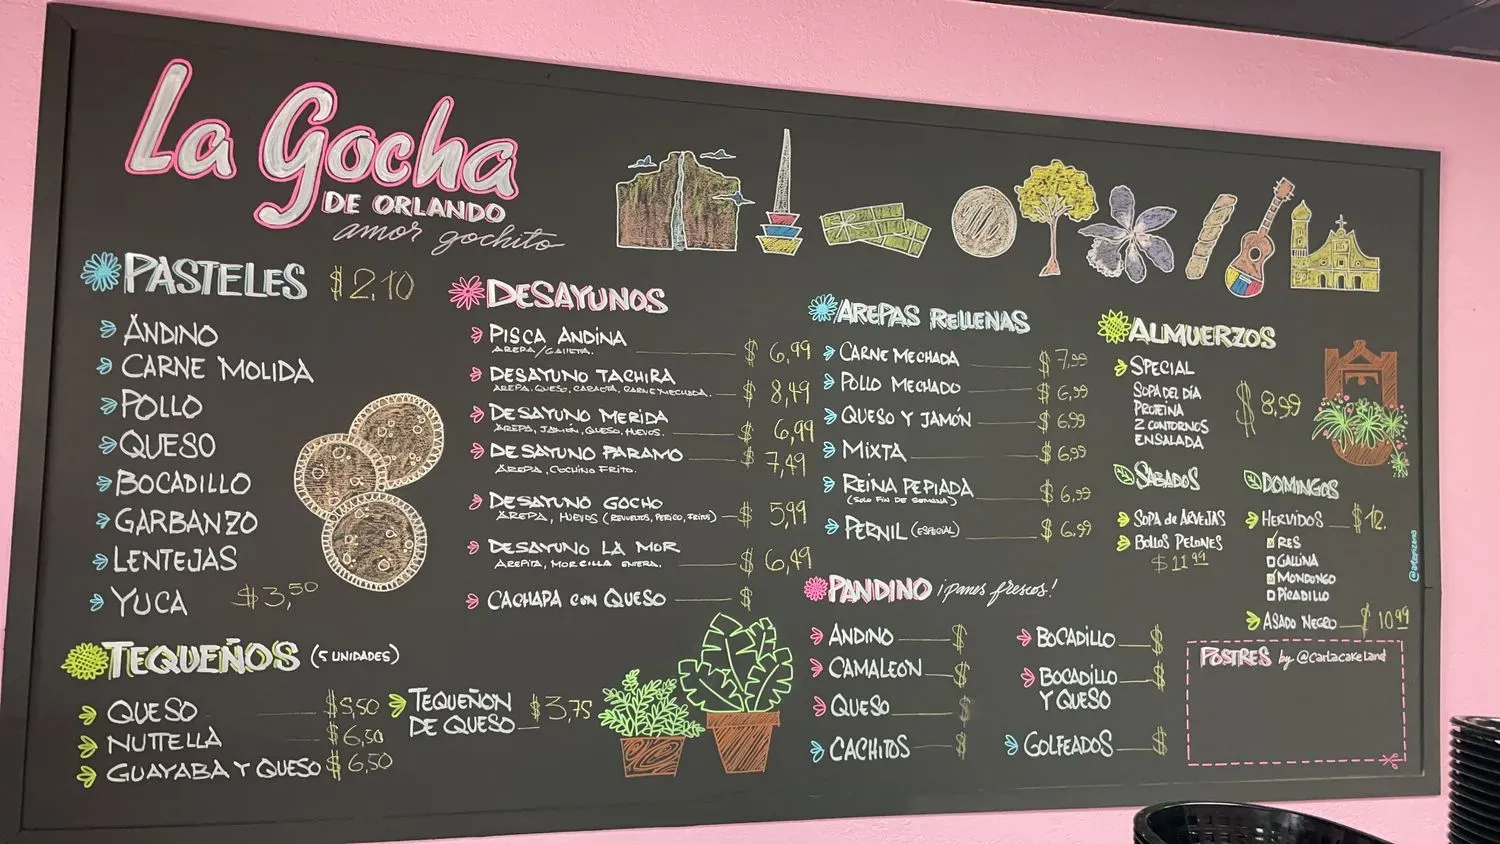 La Gocha
DE ORLANDO
amor gochito
PASTELES $2.10
ANDINO
CARNE MOLIDA
POLLO
QUESO
BOCADILLO
GARBANZO
LENTEJAS
YUCA $3,50
TEQUEÑOS (5 UNIDADES)
QUESO $5,50
NUTTELLA $6,50
GUAYABA Y QUESO $6,50
TEQUEÑON
DE QUESO $3,75
DESAYUNOS
PISCA ANDINA $6,99
AREPA/GALLETA.
DESAYUNO TACHIRA $8,49
AREPA, QUESO, CARAOTA, CARNE MECHADA.
DESAYUNO MERIDA $6,99
AREPA, JAMÓN, QUESO, HUEVOS.
DESAYUNO PARAMO $7,49
AREPA, COCHINO FRITO.
DESAYUNO GOCHO $5,99
AREPA, HUEVOS (REVUELTOS, PERICO, FRITOS)
DESAYUNO LA MOR $6,49
AREPITA, MORCILLA ENTERA.
CACHAPA CON QUESO $
AREPAS RELLENAS
CARNE MECHADA $7,99
POLLO MECHADO $6,99
QUESO Y JAMÓN $6,99
MIXTA $6,99
REINA PEPIADA $6,99
(SOLO FIN DE SEMANA)
PERNIL (ESPECIAL) $6.99
PANDINO ¡panes frescos!
ANDINO $
CAMALEON $
QUESO $
CACHITOS $
BOCADILLO $
BOCADILLO $
Y QUESO
GOLFEADOS $
ALMUERZOS
SPECIAL
SOPA DEL DÍA
PROTEINA
2 CONTORNOS
ENSALADA
$8,99
SABADOS
SOPA de ARVEJAS
BOLLOS PELONES
$11 99
DOMINGOS
HERVIDOS $12.
RES
GALLINA
MONDONGO
PICADILLO
ASADO NEGRO $10 99
POSTRES by @carlacakeland